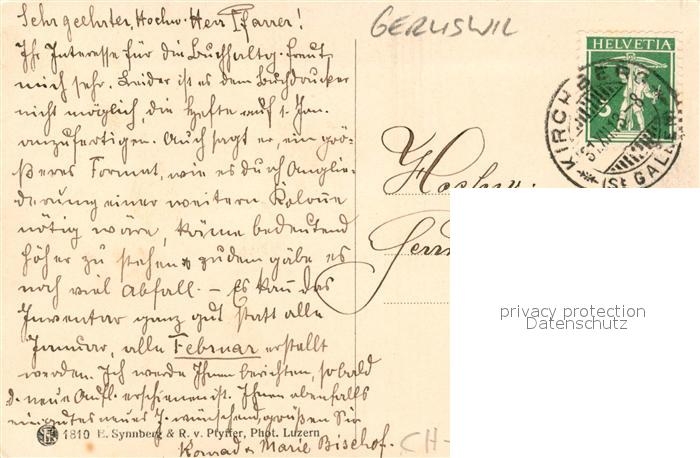 Sehr geehrter, Hochw. Herr Pfarrer!
Ihr Interesse für die Buchhaltg. freut
mich sehr. Leider ist es dem Buchdrucker
nicht möglich, die Hefte auf 1. Jan.
anzufertigen. Auch sagt er, ein grö-
ßeres Format, wie es durch Anglie-
derung einer weitern Kolonne
nötig wäre, käme bedeutend
höher zu stehen & zudem gäbe es
noch viel Abfall. – Es kann das
Inventar ganz gut statt alle
Januar, alle Februar erstellt
werden. Ich werde Ihnen berichten, sobald
d. neue Aufl. erschienen ist. Ihnen ebenfalls
ein gutes neues J. wünschend, grüßen Sie
Konrad & Marie Bischof.
1810 E. Synnberg & R. v. Pfyffer, Phot. Luzern
GERLISWIL
HELVETIA
KIRCHBERG
(St. GALLEN)
Hochw.
Herrn
privacy protection
Datenschutz
CH-